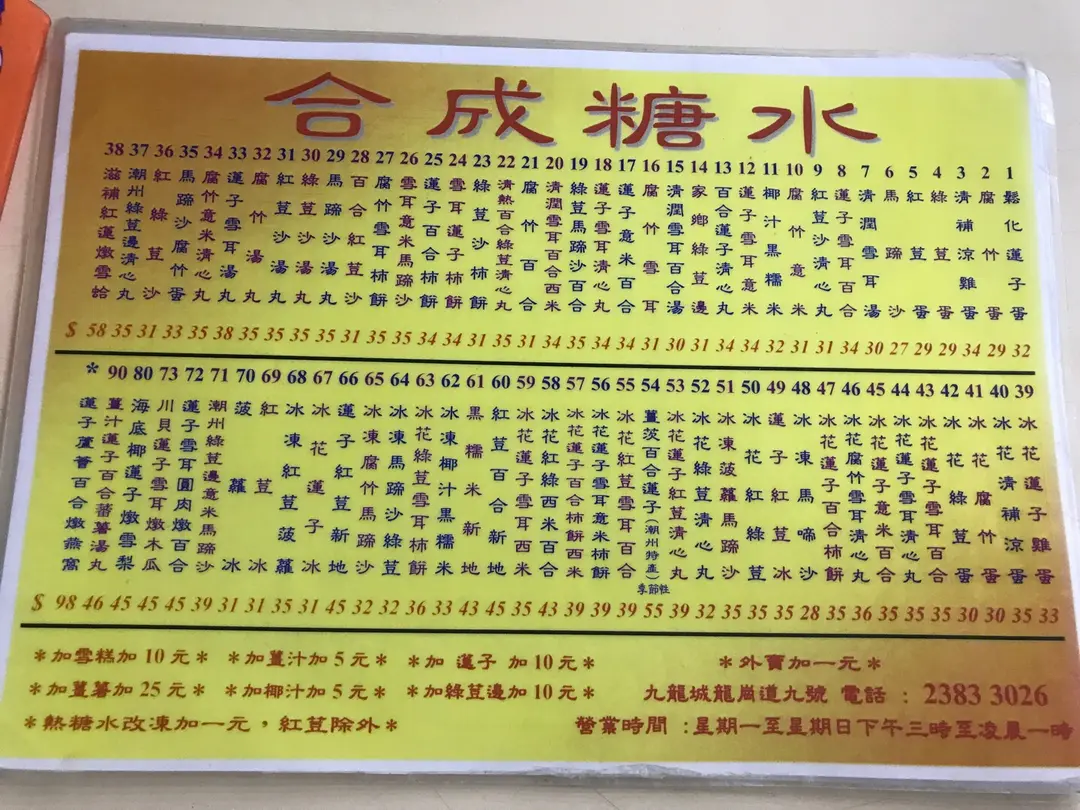 合成糖水
38 37 36 35 34 33 32 31 30 29 28 27 26 25 24 23 22 21 20 19 18 17 16 15 14 13 12 11 10 9 8 7 6 5 4 3 2 1
鬆化蓮子蛋
腐竹蛋
清補涼雞蛋
綠荳蛋
紅荳蛋
馬蹄沙
清潤雪耳湯
蓮子雪耳百合
紅荳沙清心丸
腐竹意米
椰汁黑糯米
蓮子雪耳意米
百合蓮子清心丸
家鄉綠荳邊
清潤雪耳百合湯
腐竹雪耳
蓮子意米百合
蓮子雪耳清心丸
綠荳馬蹄沙百合
清潤雪耳百合西米
腐竹百合
清熱百合綠荳清心丸
綠荳沙柿餅
雪耳蓮子柿餅
蓮子百合柿餅
雪耳意米馬蹄沙
腐竹雪耳柿餅
百合紅荳沙
馬蹄沙湯丸
綠荳沙湯丸
紅荳沙湯丸
腐竹湯丸
蓮子雪耳湯丸
腐竹意米清心丸
馬蹄沙腐竹蛋
紅綠荳沙
潮州綠荳邊清心丸
滋補紅蓮燉雪蛤
$ 58 35 31 33 35 38 35 35 35 35 31 35 35 34 34 31 35 31 34 35 34 34 31 30 31 34 34 32 31 31 34 30 27 29 29 34 29 32
* 90 80 73 72 71 70 69 68 67 66 65 64 63 62 61 60 59 58 57 56 55 54 53 52 51 50 49 48 47 46 45 44 43 42 41 40 39
冰花蓮子雞蛋
冰花清補涼
冰花腐竹蛋
冰花綠荳蛋
冰花蓮子雪耳百合
冰花蓮子雪耳清心丸
冰花蓮子意米百合
冰花腐竹雪耳清心丸
冰花蓮子百合柿餅
冰凍馬啼沙
蓮子紅荳冰
冰花紅綠沙
冰凍菠蘿馬蹄沙
冰花綠荳清心丸
冰花蓮子紅荳清心丸
薑茨百合蓮子(潮州特產)季節性
冰花紅荳雪耳百合
冰花蓮子雪耳意米柿餅
冰花蓮子百合柿餅西米
冰花紅綠西米百合
冰花蓮子雪耳西米
紅荳百合新地
黑糯米新地
冰凍椰汁黑糯米
冰花綠荳雪耳柿餅
冰凍馬蹄沙綠荳
冰凍腐竹馬蹄沙
蓮子紅荳新地
冰花蓮子冰
冰凍紅荳菠蘿
紅荳冰
菠蘿冰
潮州綠荳邊意米馬蹄沙
蓮子雪耳圓肉燉百合
川貝蓮子雪耳燉木瓜
海底椰蓮子燉雪梨
薑汁蓮子百合蕃薯湯丸
蓮子蘆薈百合燉燕窩
$ 98 46 45 45 45 39 31 31 35 31 45 32 32 36 33 43 45 35 43 39 39 39 55 39 32 35 35 28 35 36 35 35 35 30 30 35 33
*加雪糕加 10 元* *加薑汁加 5 元* *加 蓮子 加 10 元* *外賣加一元*
*加薑薯加 25 元* *加椰汁加 5 元* *加綠荳邊加 10 元* 九龍城龍崗道九號 電話 : 2383 3026
*熱糖水改凍加一元，紅荳除外* 營業時間 :星期一至星期日下午三時至凌晨一時